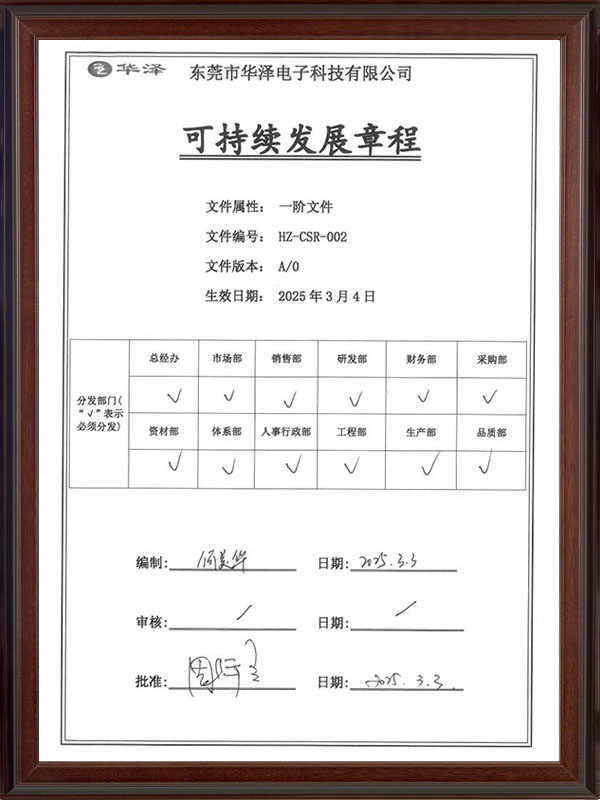 华泽 东莞市华泽电子科技有限公司
可持续发展章程
文件属性： 一阶文件
文件编号： HZ-CSR-002
文件版本： A/0
生效日期： 2025 年 3 月 4 日
总经办 市场部 销售部 研发部 财务部 采购部
分发部门(
“√”表示
必须分发)
√ √ √ √ √ √
资材部 体系部 人事行政部 工程部 生产部 品质部
√ √ √ √ √ √
编制: 何美华 日期: 2025.3.3
审核: / 日期: /
批准: 日期: 2025.3.3.